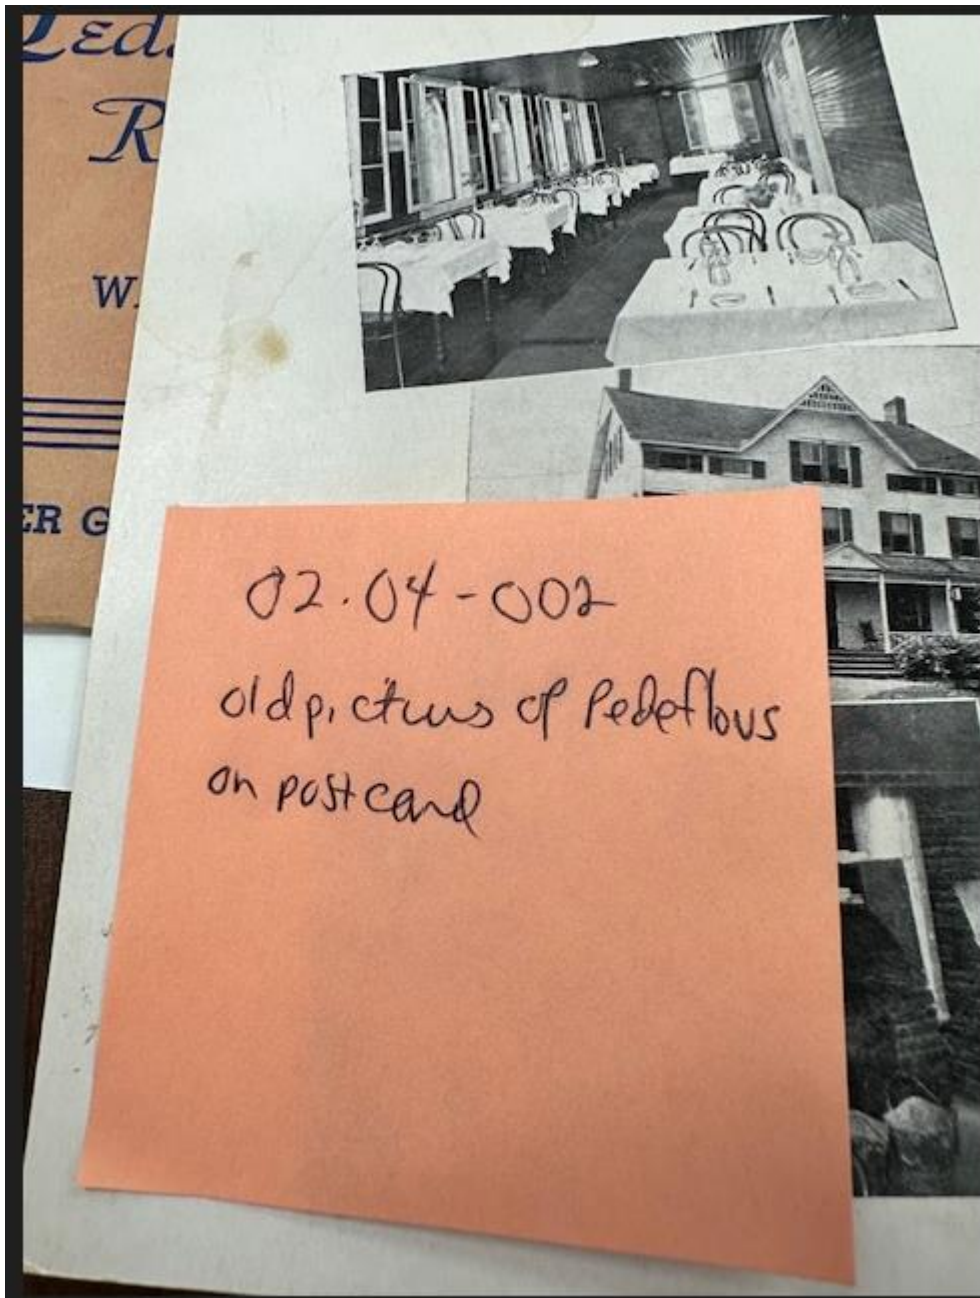 Led
R
W
ER G
02.04-002
old pictures of Pedeflous
on postcard